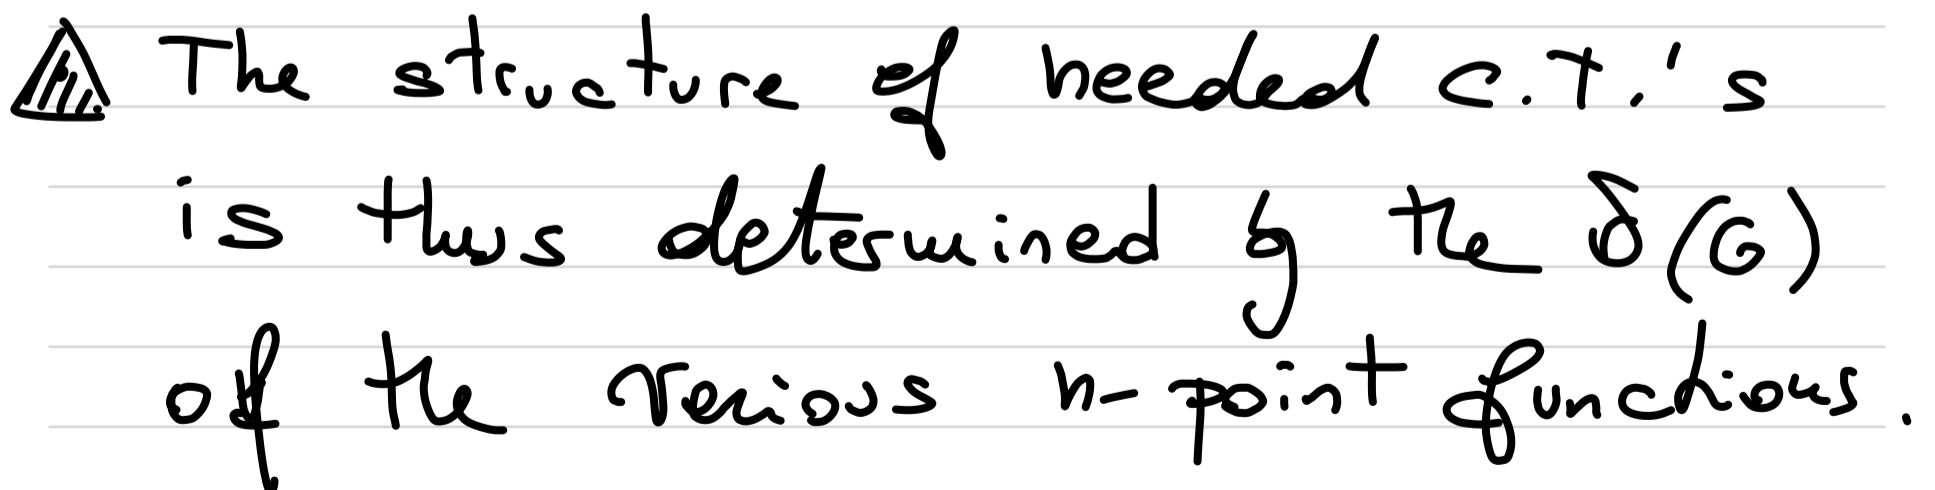 The structure of needed C.T.'s
is thus determined by the δ(G)
of the various n-point functions.